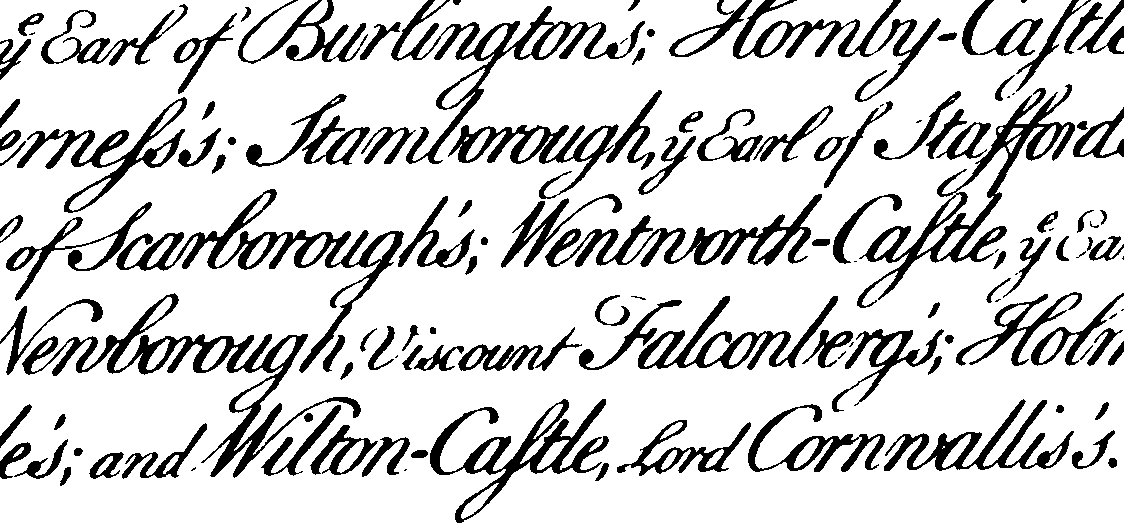 yͤ Earl of Burlington's; Hornby-Caſtle
erneſs's; Stamborough, yͤ Earl of Stafford
of Scarborough's; Wentworth-Caſtle, yͤ Ear
Newborough, Viscount Falconberg's; Holm
le's; and Wilton-Caſtle, Lord Cornwallis's.